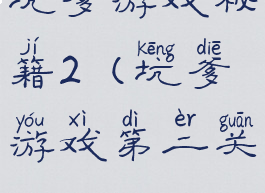 坑爹游戏秘
jí kēng diē
籍2(坑爹
yóu xì dì èr guān
游戏第二关